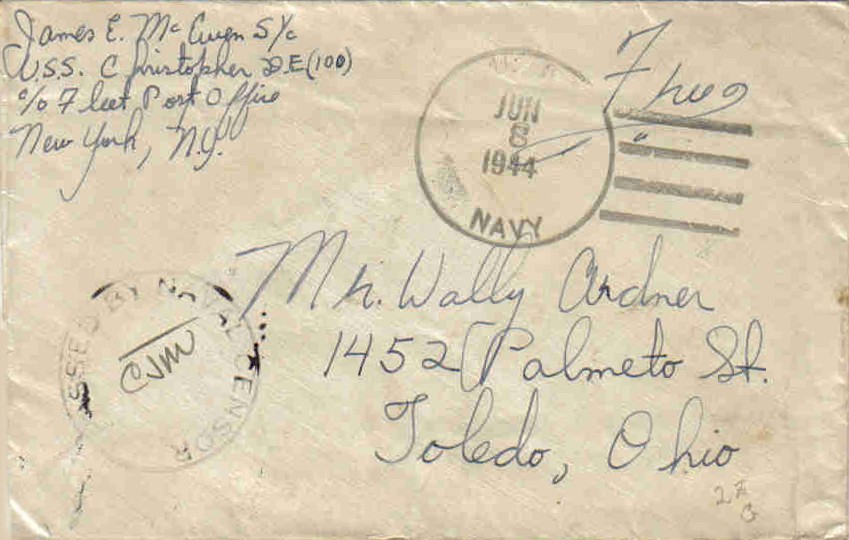 James E. McEwen S/c
U.S.S. Christopher D.E. (100)
c/o Fleet Post Office
New York, N.Y.
Free
JUN
8
1944
NAVY
PASSED BY NAVAL CENSOR
CJM
Mr. Wally Ardner
1452 Palmeto St.
Toledo, Ohio